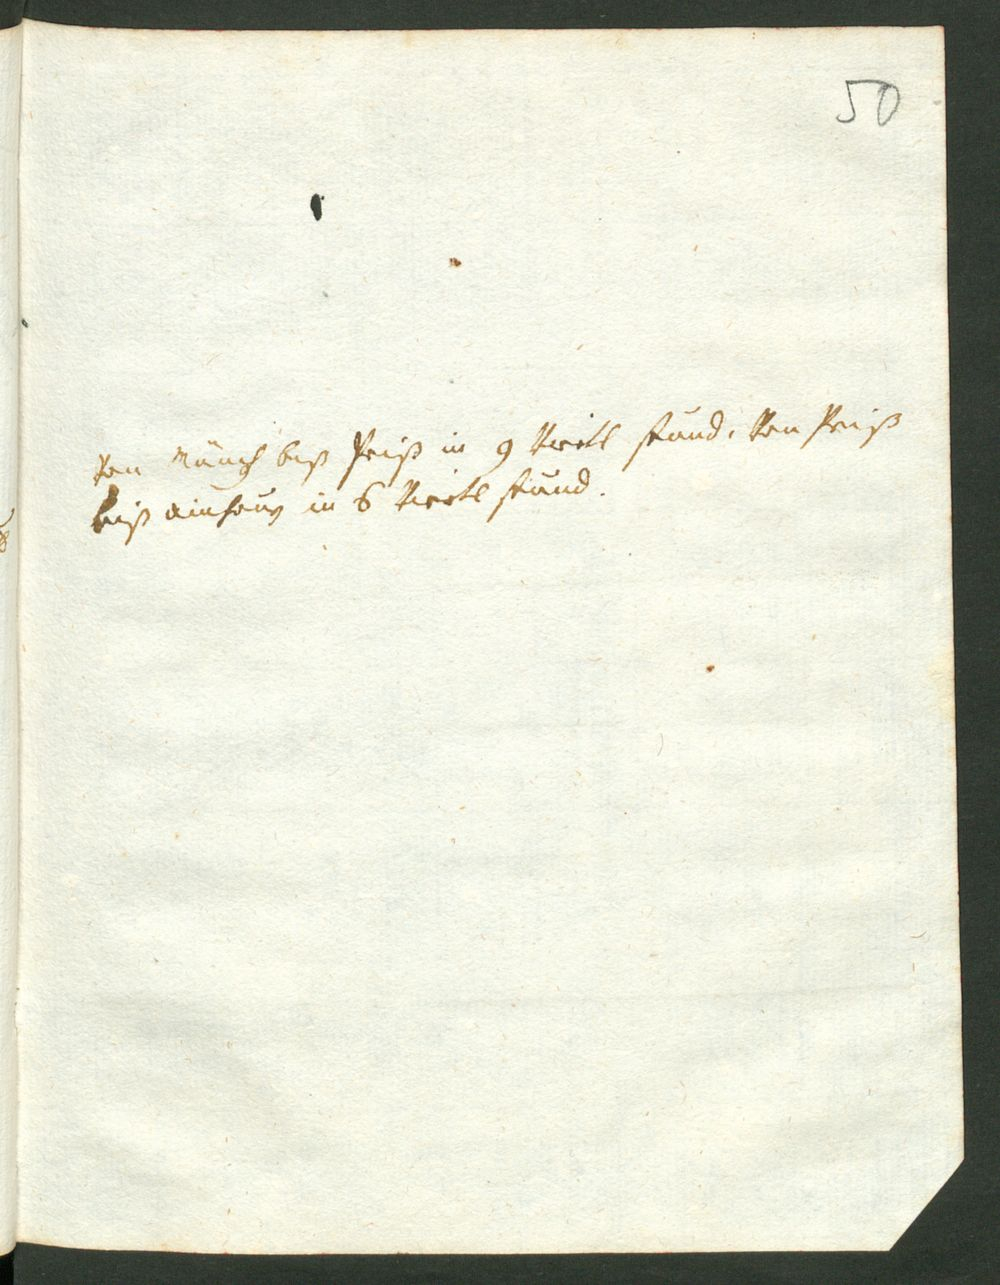 50
Von Münch biß Preiß in 9 Viertl stund, Von Preiß
biß ainhauß in 6 Viertl stund.